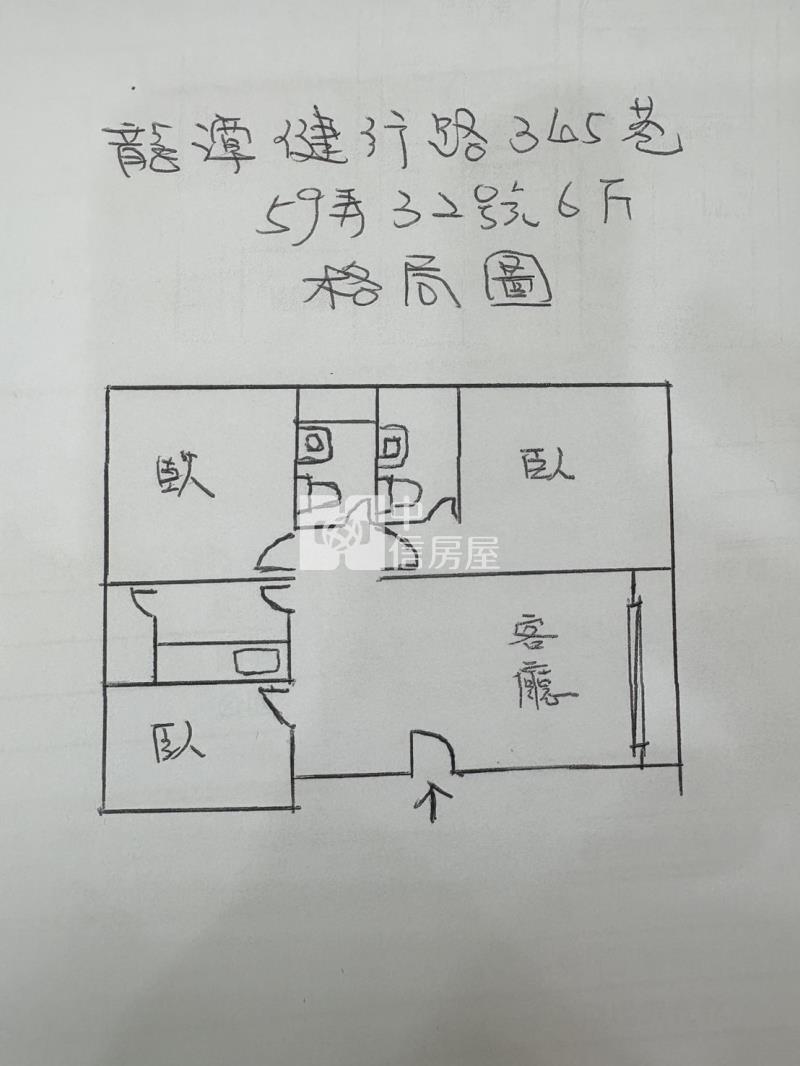 龍潭健行路345巷
59弄32號6F
格局圖
臥
臥
中
信房屋
客
廳
臥